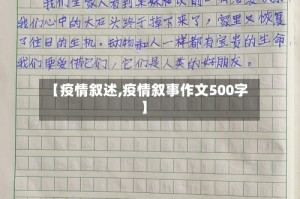 我们
心中的大石头终于掉下来了，
又恢复
了往日的生机。动物和人一样都有宝贵的生命，
我们要爱护它们，它们是人类的好朋友。
【疫情叙述,疫情叙事作文500字
】